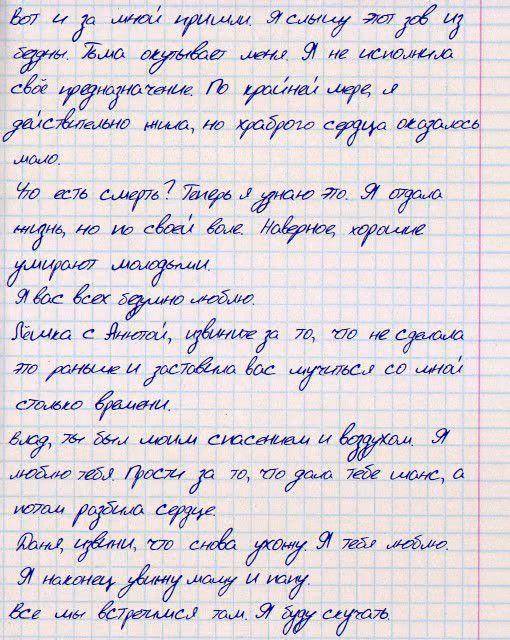 Вот и за мной пришли. Я слышу этот зов из
бездны. Тьма окутывает меня. Я не исполнила
своё предназначение. По крайней мере, я
действительно жила, но храброго сердца оказалось
мало.
Что есть смерть? Теперь я узнаю это. Я отдала
жизнь, но по своей воле. Наверное, хорошие
умирают молодыми.
Я вас всех безумно люблю.
Лёшка с Анютой, извините за то, что не сделала
это раньше и заставила вас мучиться со мной
столько времени.
Влад, ты был моим спасением и воздухом. Я
люблю тебя. Прости за то, что дала тебе шанс, а
потом разбила сердце.
Даня, извини, что снова ухожу. Я тебя люблю.
Я наконец увижу маму и папу.
Все мы встретимся там. Я буду скучать.